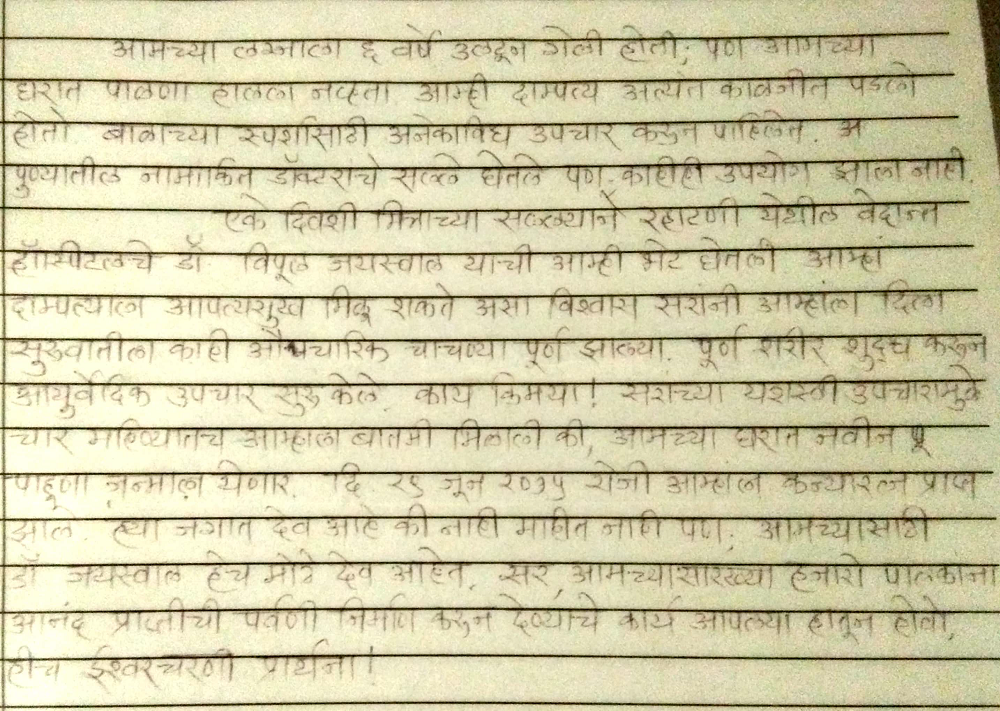 आमच्या लग्नाला ६ वर्षे उलटून गेली होती; पण आमच्या
घरात पाळणा हालला नव्हता. आम्ही दाम्पत्य अत्यंत काळजीत पडलो
होतो. बाळाच्या स्पर्शासाठी अनेकाविध उपचार करुन पाहिलेत. अ
पुण्यातील नामांकित डॉक्टरांचे सल्ले घेतले पण काहीही उपयोग झाला नाही.
एके दिवशी मित्राच्या सल्ल्याने रहाटणी येथील वेदान्त
हॉस्पीटलचे डॉ. विपूल जयस्वाल यांची आम्ही भेट घेतली. आम्हां
दाम्पत्याला आपत्यसुख मिळू शकते असा विश्वास सरांनी आम्हांला दिला
सुरुवातीला काही औपचारिक चाचण्या पूर्ण झाल्या. पूर्ण शरीर शुद्ध करून
आयुर्वेदिक उपचार सुरु केले. काय किमया! सरांच्या यशस्वी उपचारामुळे
चार महिन्यातच आम्हाला बातमी मिळाली की, आमच्या घरात नवीन पू
पाहूणा जन्माला येणार. दि. २९ जून २०१५ रोजी आम्हांला कन्यारत्न प्राप्त
झाले. ह्या जगात देव आहे की नाही माहीत नाही पण; आमच्यासाठी
डॉ. जयस्वाल हेच मोठे देव आहेत. सर, आमच्यासारख्या हजारो पालकांना
आनंद प्राप्तीची पर्वणी निर्माण करुन देण्याचे कार्य आपल्या हातून होवो,
हीच ईश्वरचरणी प्रार्थना!